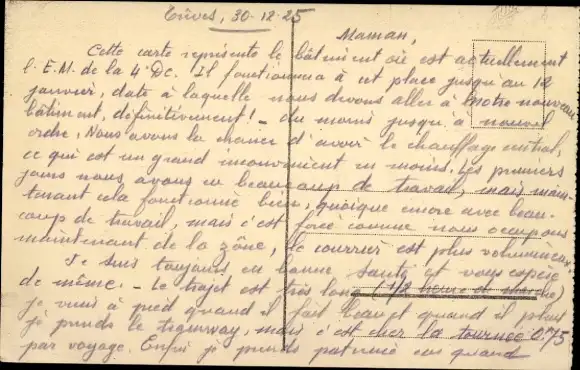 Trèves, 30-12-25
Maman,
Cette carte représente le bâtiment où est actuellement
l'E.M. de la 4e D.C. Il fonctionnera à cet place jusqu'au 12
janvier, date à laquelle nous devons aller à notre nouveau
bâtiment, définitivement! - du moins jusqu'à nouvel
ordre. Nous avons la chance d'avoir le chauffage central,
ce qui est un grand inconvénient en moins. Les premiers
jours nous avons eu beaucoup de travail, mais main-
tenant cela fonctionne bien, quoique encore avec beau-
coup de travail, mais c'est forcé comme nous occupons
maintenant de la zône, le courrier est plus volumineux.
Je suis toujours en bonne santé et vous espère
de même. - Le trajet est très long (1/2 heure de marche)
je viens à pied quand il fait beau et quand il pleut
je prends le tramway, mais c'est cher la tournée 0.75
par voyage. Enfin je prends patience car quand